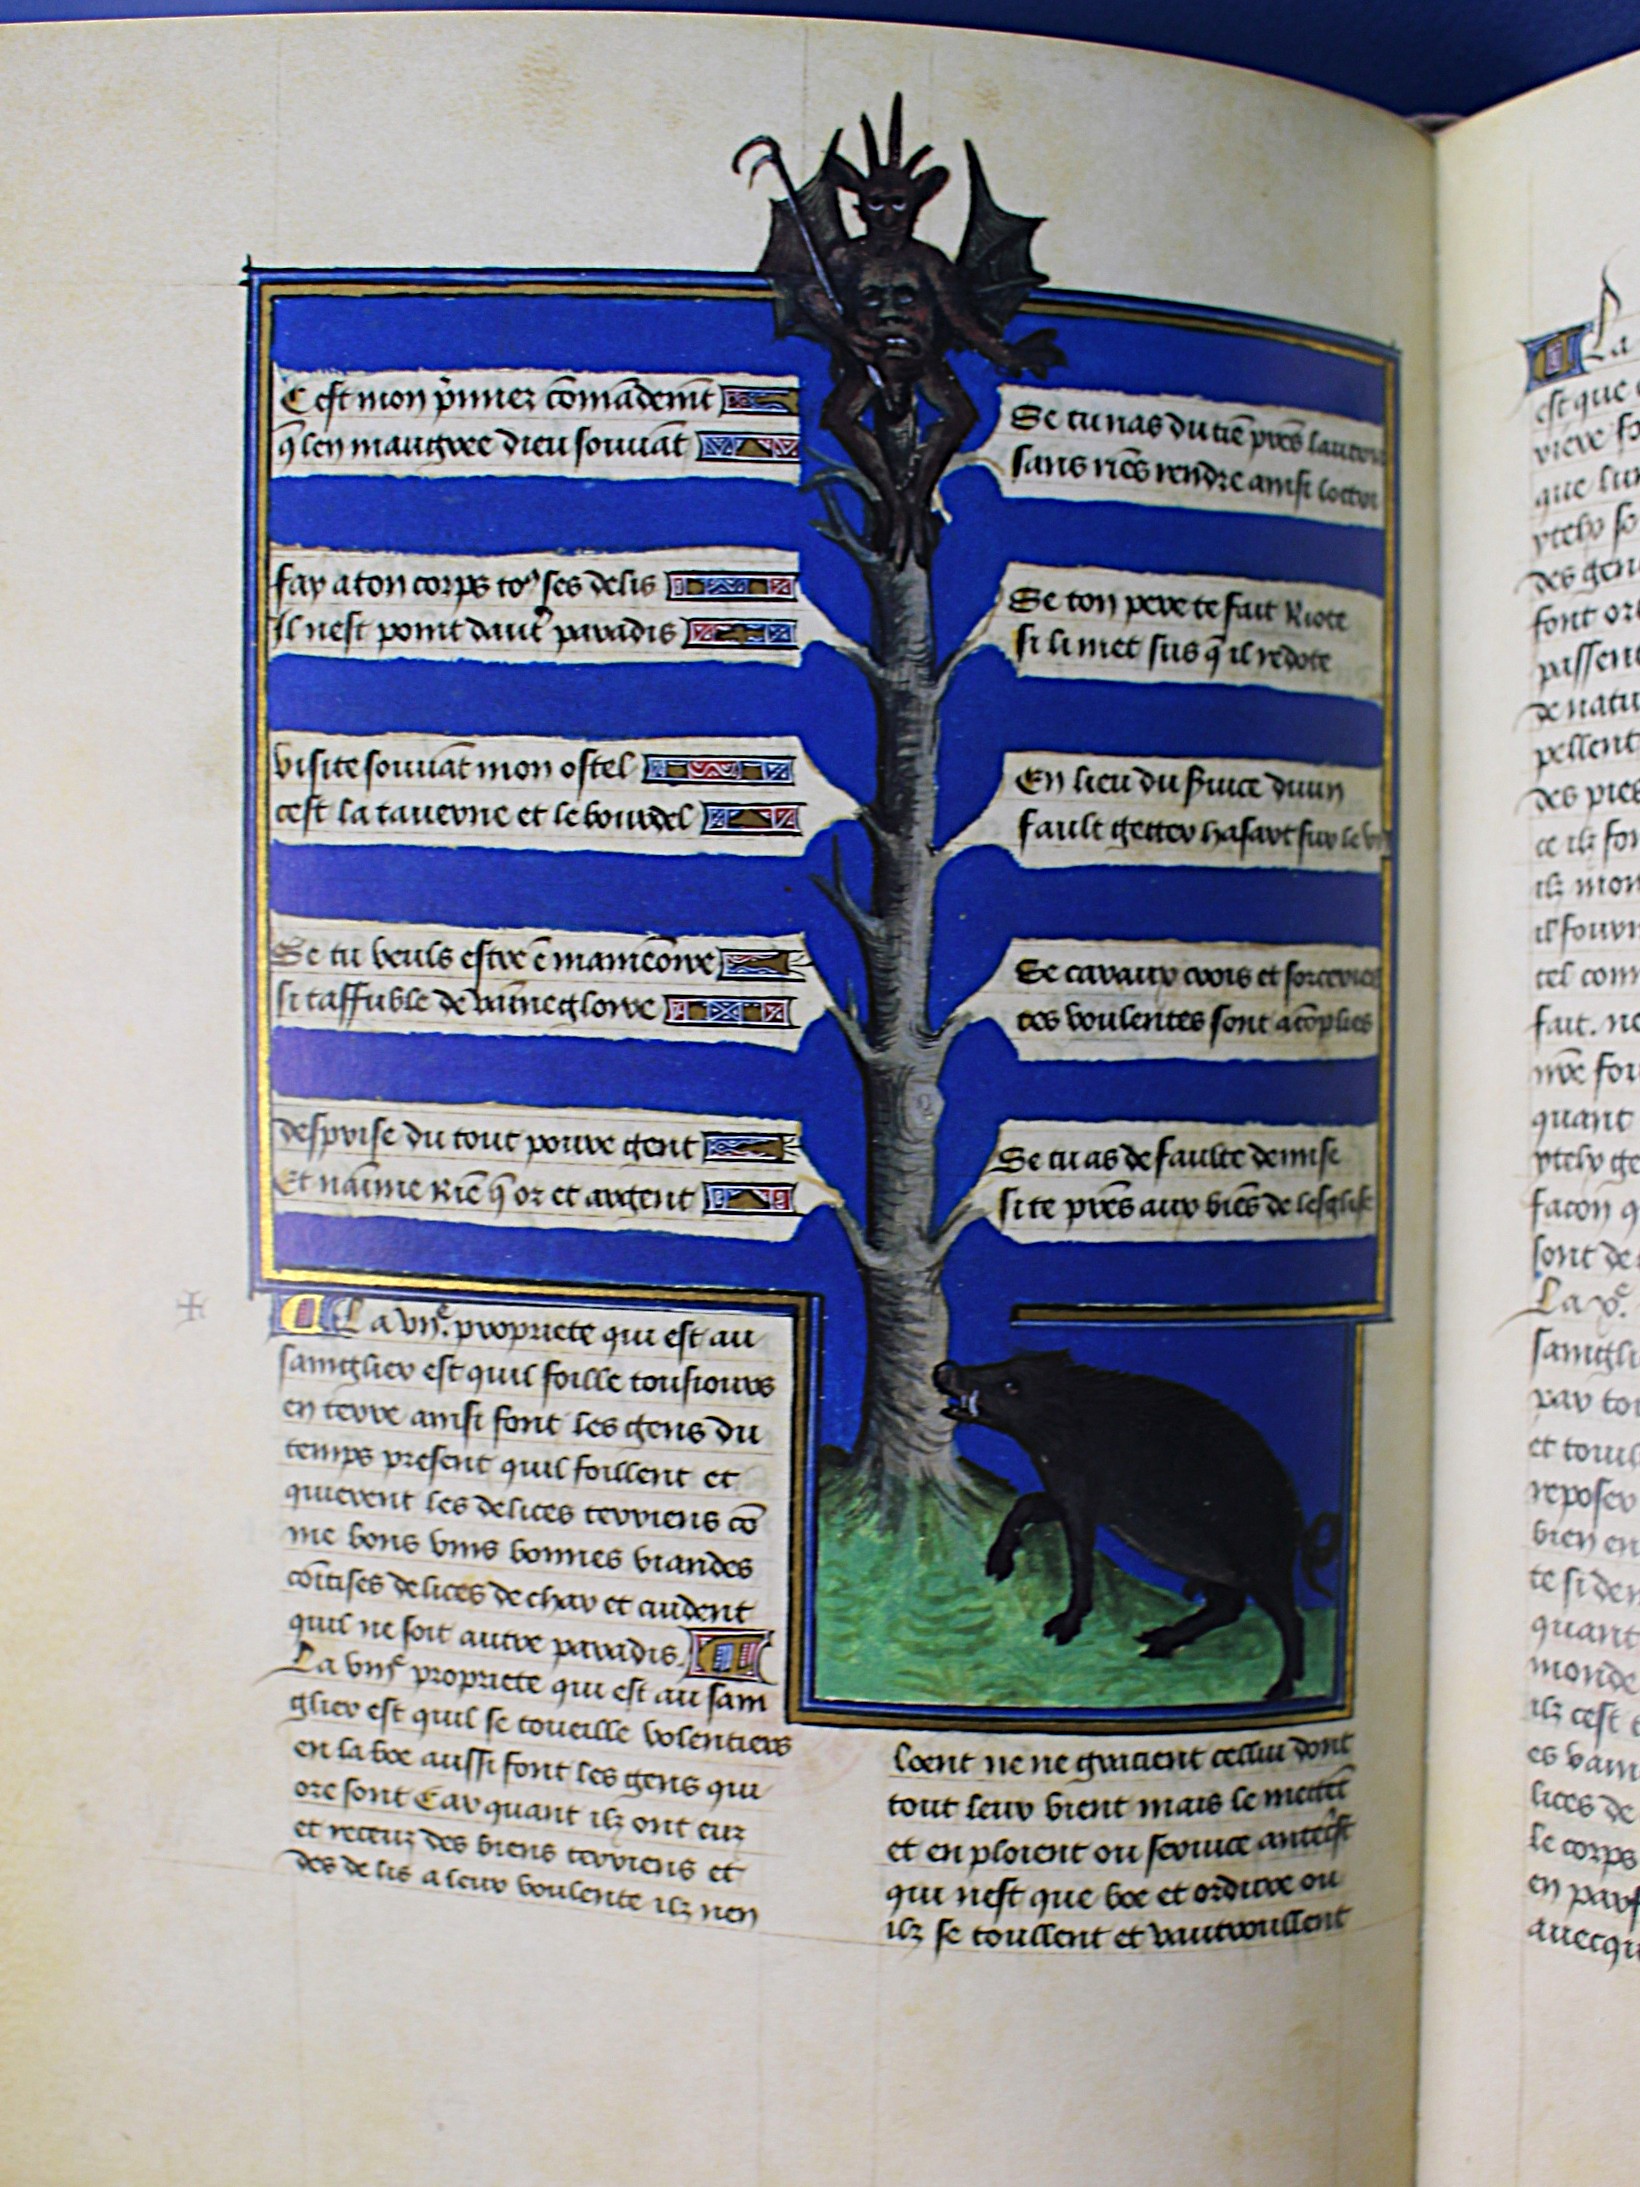 C est mon p̃mier cõmãdem̃t
q̃ len maugree dieu souuãt
fay a ton corps to⁹ ses delis
Il nest point daut̃ paradis
visite souuãt mon ostel
cest la tauerne et le bourdel
Se tu veuls estre ẽ ma mẽoire
si taffuble de vaine gloire
desprise du tout poure gent
Et naĩme riẽ q̃ or et argent
Se tu nas du tiẽ prẽs lautrui
sans riẽs rendre ainsi
Se ton pere te fait Riote
si li met sus q̃ il redote
En lieu du seruice diuin
fault getter hasart sur le
Se caraux crois et sorceries
tes voulentes sont acõplies
Se tu as de faulte demise
si te prẽs aux biẽs de lesglise
La vii^e. propriete qui est au
sainglier est quil foille tousiours
en terre ainsi font les gens du
temps present quil foillent et
quierent les delices terriens cõ
me bons vins bonnes viandes
cointises delices de char et cuident
quil ne soit autre paradis.
La viii^e propriete qui est au sain
glier est quil se toueille volentiers
en la boe aussi font les gens qui
ore sont Car quant ilz ont eux
et receuz des biens terriens et
des delis a leur voulente ilz nen
loent ne ne gracient cellui dont
tout leur vient mais le mettẽt
et en ploient ou seruice antecrist
qui nest que boe et ordure ou
ilz se toullent et vautroullent
La
est que
que
des gen
font
passent
de natu
pellent
des
ce ilz fon
ilz mon
il
tel com
fait. ne
quant
facon q
sont de
La
sainglie
par tou
et
reposer
bien en
te si
quant
monde
ilz cest
es
lices de
le corps
en
auecqu